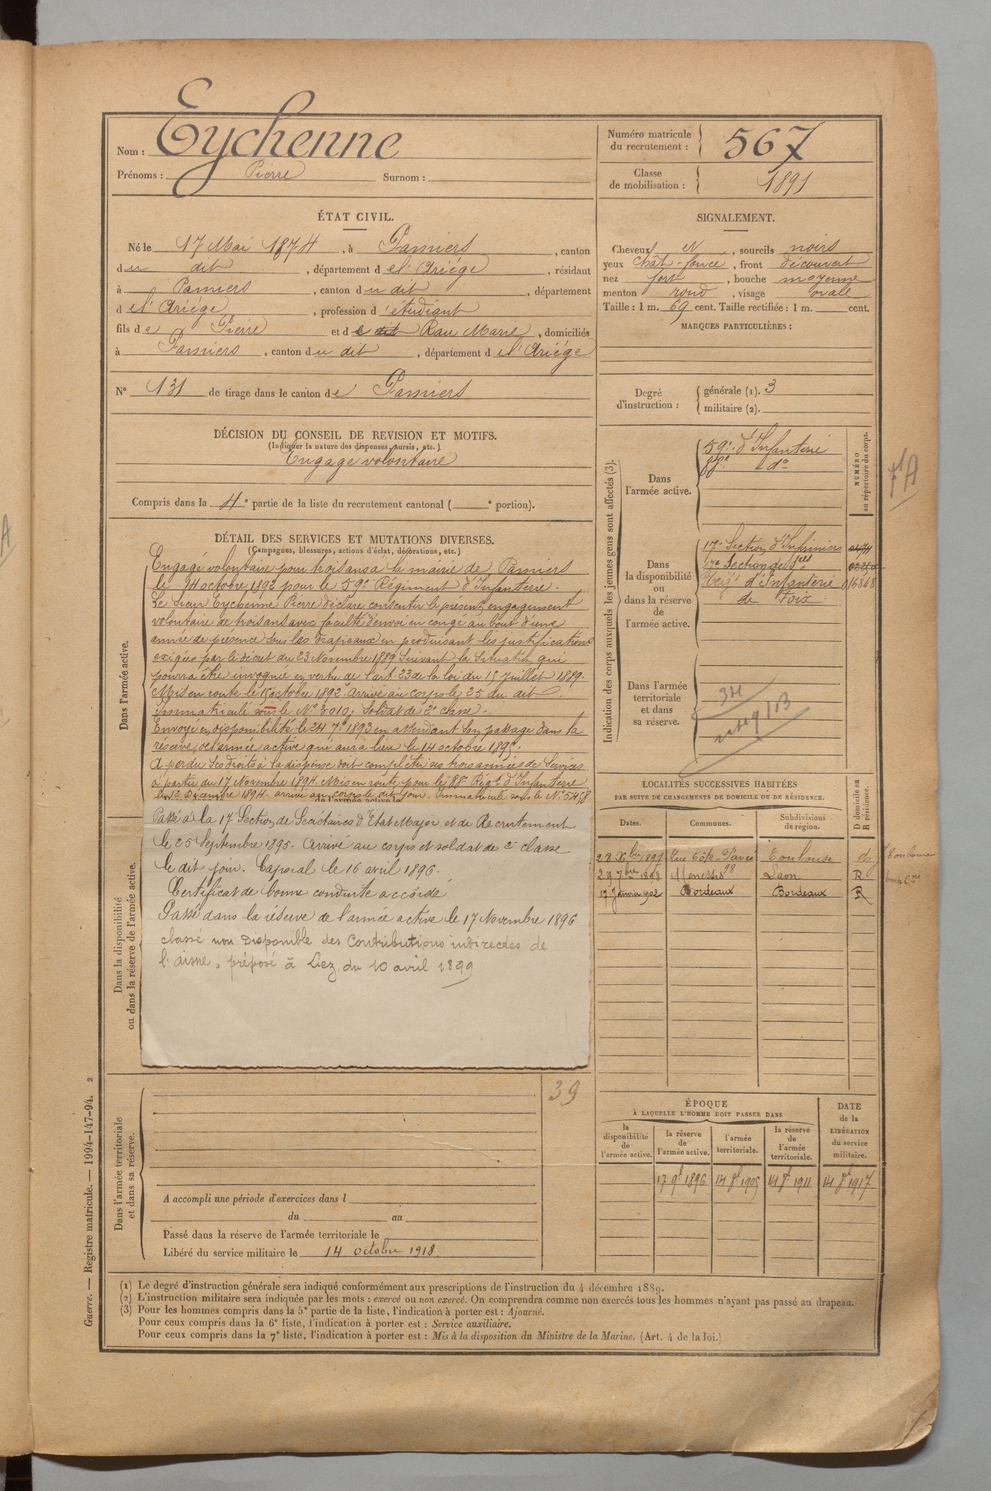 Nom : Eychenne
Prénoms : Pierre Surnom :
Numéro matricule
du recrutement : 567
Classe
de mobilisation : 1891
ÉTAT CIVIL.
Né le 17 Mai 1874, à Pamiers, canton
du dit, département de l'Ariège, résidant
à Pamiers, canton du dit, département
de l'Ariège, profession d'étudiant
fils de Pierre et de Rau Marie, domiciliés
à Pamiers, canton du dit, département de l'Ariège
N° 131 de tirage dans le canton de Pamiers
DÉCISION DU CONSEIL DE REVISION ET MOTIFS.
(Indiquer la nature des dispenses, sursis, etc.)
Engagé volontaire
Compris dans la 4e partie de la liste du recrutement cantonal ( e portion).
SIGNALEMENT.
Cheveux et, sourcils noirs
yeux chât-foncé, front découvert
nez fort, bouche moyenne
menton rond, visage ovale
Taille : 1 m. 69 cent. Taille rectifiée : 1 m. cent.
MARQUES PARTICULIÈRES :
Degré
d'instruction :
générale (1). 3
militaire (2).
Indication des corps auxquels les jeunes gens sont affectés (3).
Dans
l'armée active.
59e d'Infanterie
88e do
NUMÉRO
au répertoire du corps.
Dans
la disponibilité
ou
dans la réserve
de
l'armée active.
17e Section d'Infirmiers
17e Section de
Regt d'Infanterie
de Foix
Dans l'armée
territoriale
et dans
sa réserve.
DÉTAIL DES SERVICES ET MUTATIONS DIVERSES.
(Campagnes, blessures, actions d'éclat, décorations, etc.)
Dans l'armée active.
Engagé volontaire pour trois ans à la mairie de Pamiers
le 14 octobre 1892 pour le 59e Régiment d'Infanterie.
Le sieur Eychenne Pierre déclare contracter le présent engagement
volontaire de trois ans avec faculté d'envoi en congé au bout d'une
année de présence sous les drapeaux en produisant les justifications
exigées par le décret du 23 Novembre 1889 suivant la situation qui
pourra être invoquée en vertu de l'art. 23 de la loi du 15 juillet 1889.
Mis en route le octobre 1892. Arrivé au corps le 25 du dit
Immatriculé sous le N° 3010. Soldat de 2e classe.
Envoyé en disponibilité le 24 7bre 1893 en attendant son passage dans la
réserve de l'armée active qui aura lieu le 14 octobre 1895.
A perdu ses droits à la dispense doit compléter ses trois années de services
à partir du 17 Novembre 1894. Mis en route pour le 88e Régt d'Infanterie
Décembre 1894. arrivé au corps le dit jour. Immatriculé sous le N° 5458
Dans la disponibilité
ou dans la réserve de l'armée active.
Passé à la 17e Section de Secrétaires d'Etat Major et de Recrutement
le 25 Septembre 1895. Arrivé au corps et soldat de 2e classe
le dit jour. Caporal le 16 avril 1896.
Certificat de bonne conduite accordé
Passé dans la réserve de l'armée active le 17 Novembre 1896
classé non disponible des Contributions indirectes de
l'aisne, préposé à Liez du 10 avril 1899
LOCALITÉS SUCCESSIVES HABITÉES
PAR SUITE DE CHANGEMENTS DE DOMICILE OU DE RÉSIDENCE.
Dates. Communes. Subdivisions
de région. D domicile ou
R résidence.
Toulouse d
29 7bre 1898 Laon R
Janvier 1902 Bordeaux Bordeaux R
ÉPOQUE
À LAQUELLE L'HOMME DOIT PASSER DANS
la
disponibilité
de
l'armée active.
la réserve
de
l'armée active.
l'armée
territoriale.
la réserve
de
l'armée
territoriale.
DATE
de la
LIBÉRATION
du service
militaire.
17 9bre 1896 14 8bre 1905 14 8bre 1911 14 8bre 1917
39
Dans l'armée territoriale
et dans sa réserve.
A accompli une période d'exercices dans l
du au
Passé dans la réserve de l'armée territoriale le
Libéré du service militaire le 14 octobre 1918
(1) Le degré d'instruction générale sera indiqué conformément aux prescriptions de l'instruction du 4 décembre 1889.
(2) L'instruction militaire sera indiquée par les mots : exercé ou non exercé. On comprendra comme non exercés tous les hommes n'ayant pas passé au drapeau.
(3) Pour les hommes compris dans la 5e partie de la liste, l'indication à porter est : Ajourné.
Pour ceux compris dans la 6e liste, l'indication à porter est : Service auxiliaire.
Pour ceux compris dans la 7e liste, l'indication à porter est : Mis à la disposition du Ministre de la Marine. (Art. 4 de la loi.)
Guerre. — Registre matricule. — 1994-147-94. 2